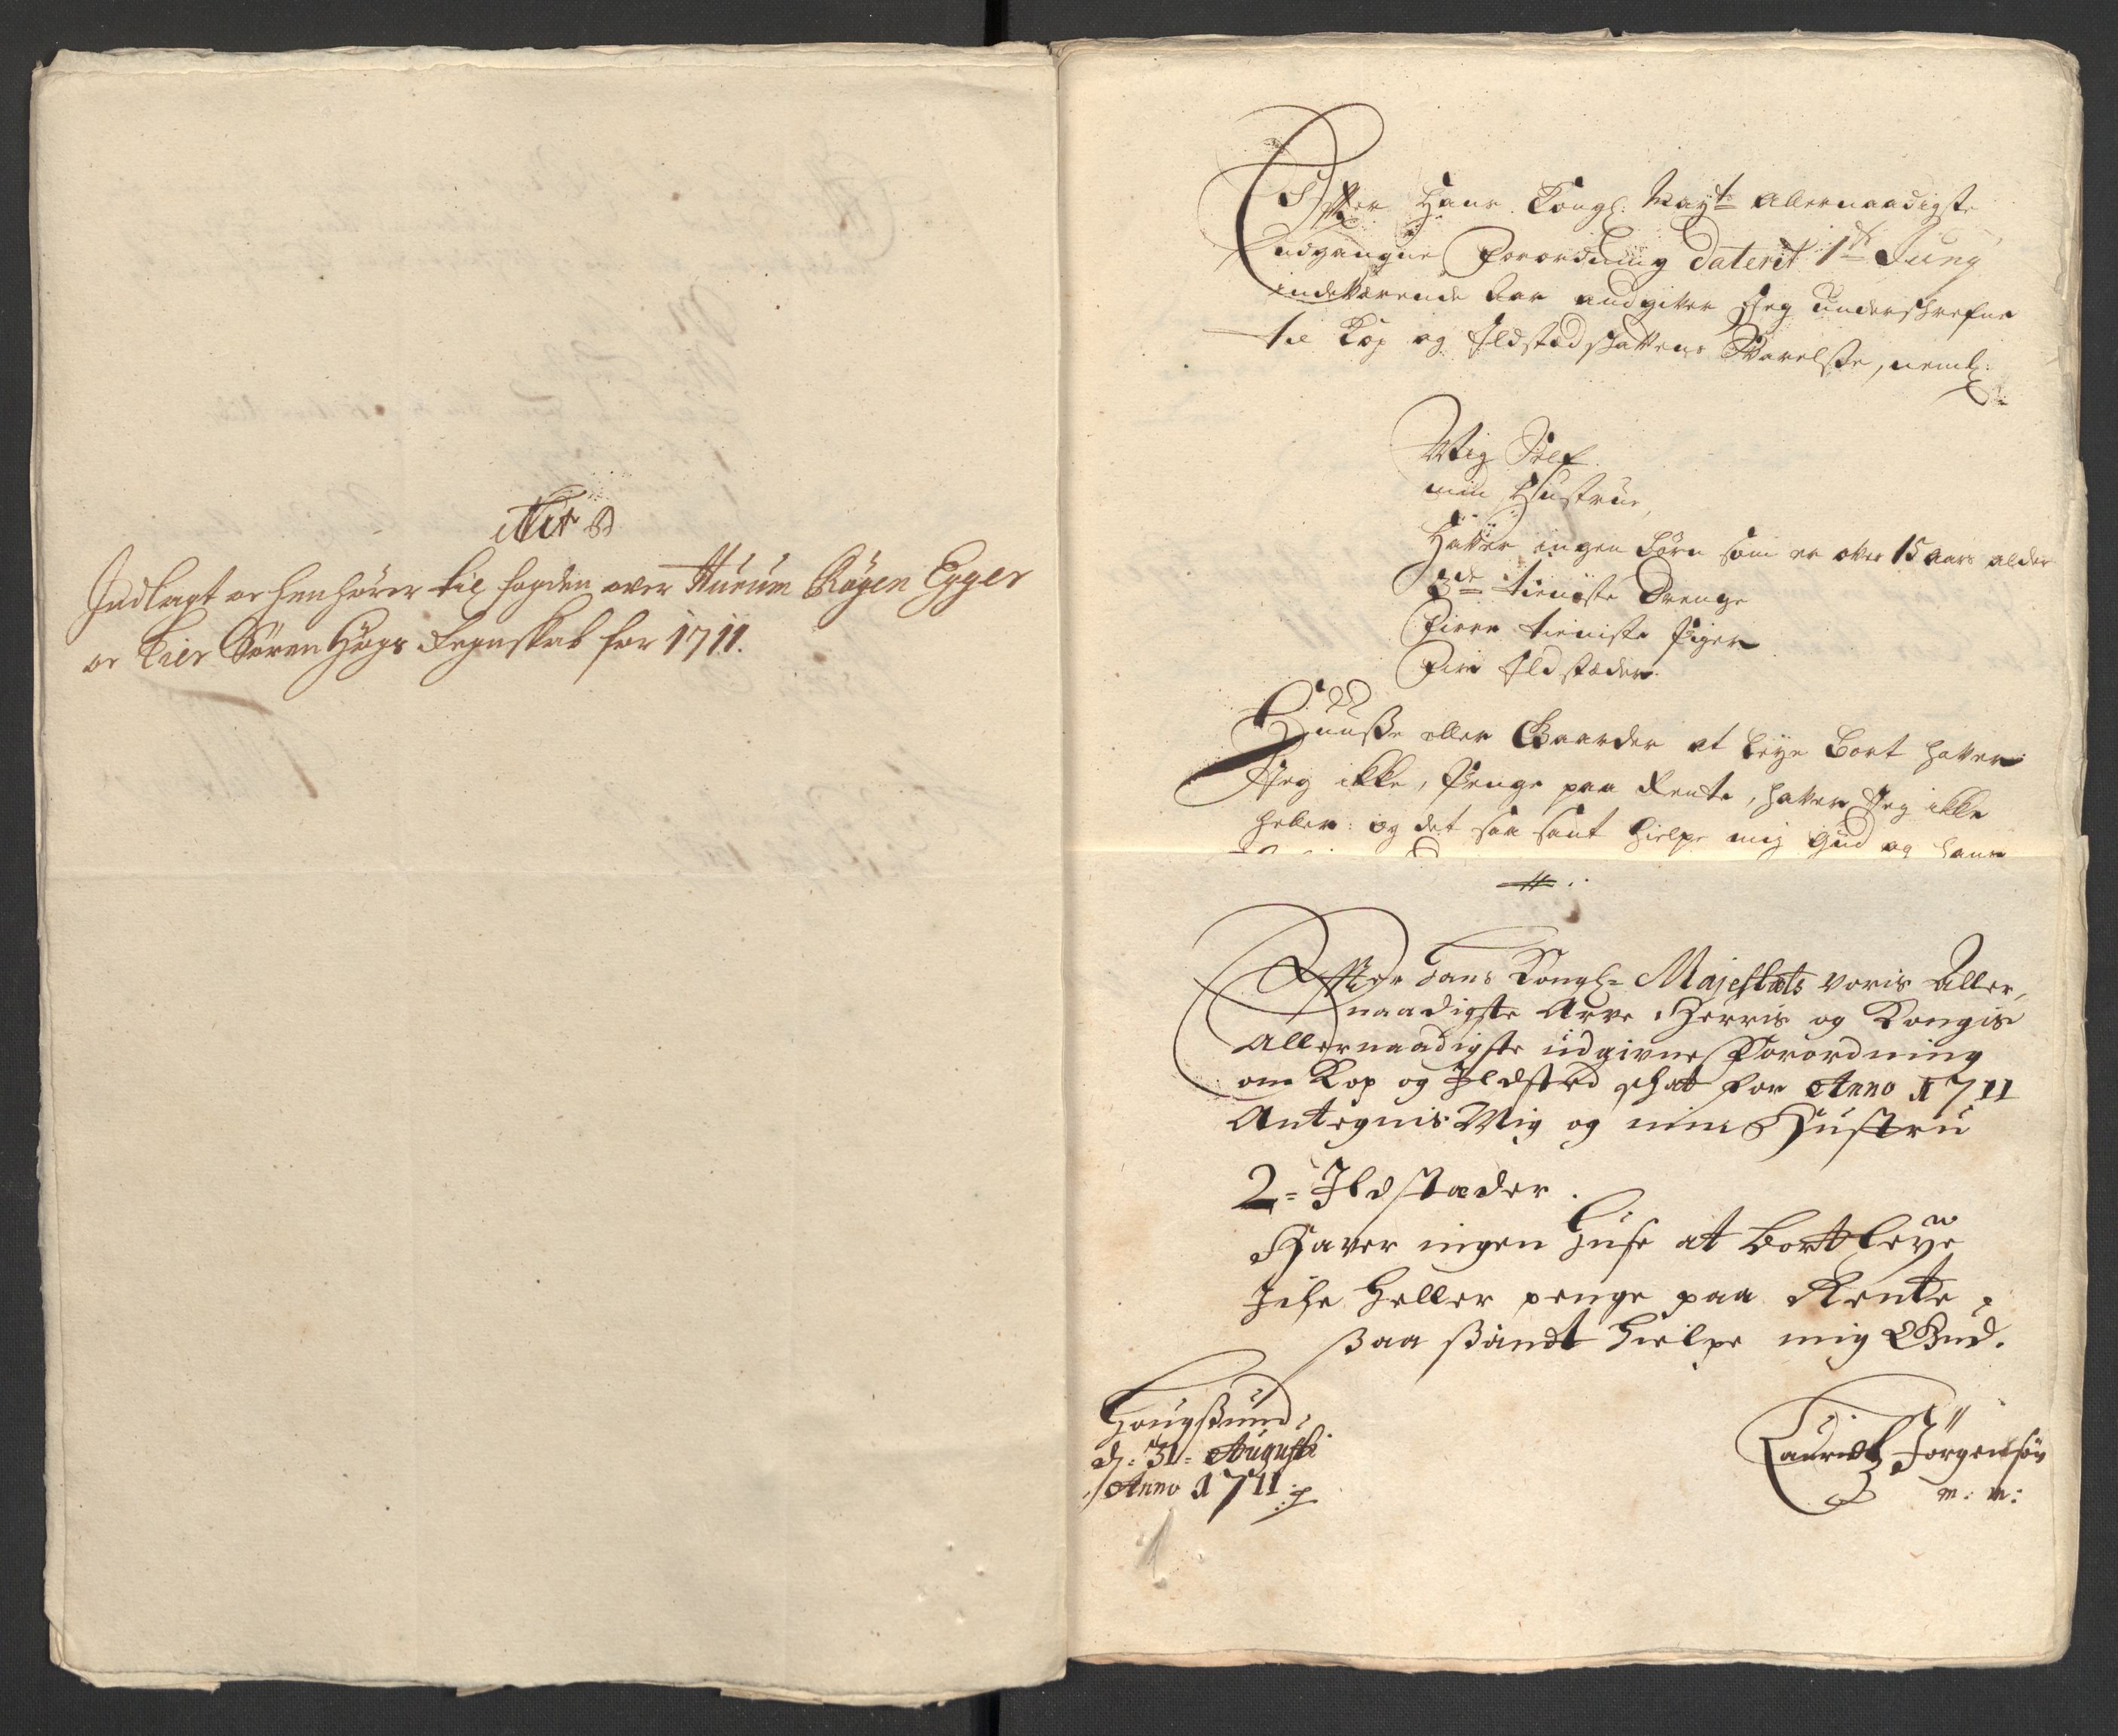 Indlagt og henhører til fogden over Hurum Røgen Egger
og Lier Søren Høgs Regnskab for 1711.
Effter Hans Kongl: Mayts Allernaadigste
udgangne Forordning dateret 1te Juny
indeværende Aar angiver Jeg underschrefne
til Kop og Ildstedschattens Svarelse, neml:
Mig Self
min Hustrue,
Haver ingen Børn som er over 15 aars alder
tieniste Drenge
Fiere tieniste Piger
Fire Ildstæder
Huusse eller Gaarder at leye bort haver
Jeg ikke, Penge paa Rente, haver Jeg ikke
heller: og det saa sant hielpe mig Gud og hans
Effter Hans Kongl: Majestæts voris Aller,
naadigste Arve Herris og Kongis
Allernaadigste udgivne Forordning
om Kop og Ildsted schat for Anno 1711
Antegnis Mig og min Hustru
2 = Ildstæder.
Haver ingen Huse at bortleye
Iche Heller penge paa Rente,
saa sandt hielpe mig Gud.
Hougsund,
d: 31 = Augusti
Anno 1711
Lauridtz Jørgensøn
m: m: